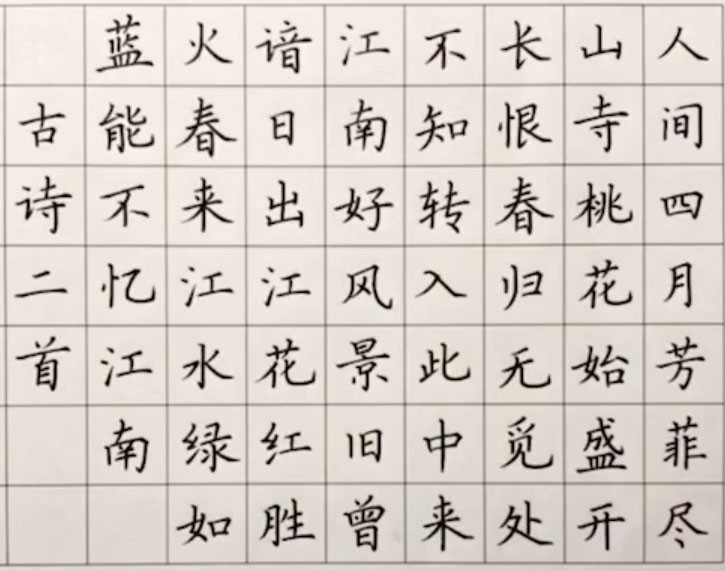 人间四月芳菲尽
山寺桃花始盛开
长恨春归无觅处
不知转入此中来
江南好风景旧曾
谙日出江花红胜
火春来江水绿如
蓝能不忆江南
古诗二首